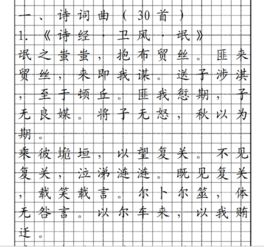 一、诗词曲(30首)
1.《诗经·卫风·氓》
氓之蚩蚩，抱布贸丝。匪来
贸丝，来即我谋。送子涉淇
，至于顿丘。匪我愆期，子
无良媒。将子无怒，秋以为
期。
乘彼垝垣，以望复关。不见
复关，泣涕涟涟。既见复关
，载笑载言。尔卜尔筮，体
无咎言。以尔车来，以我贿
迁。